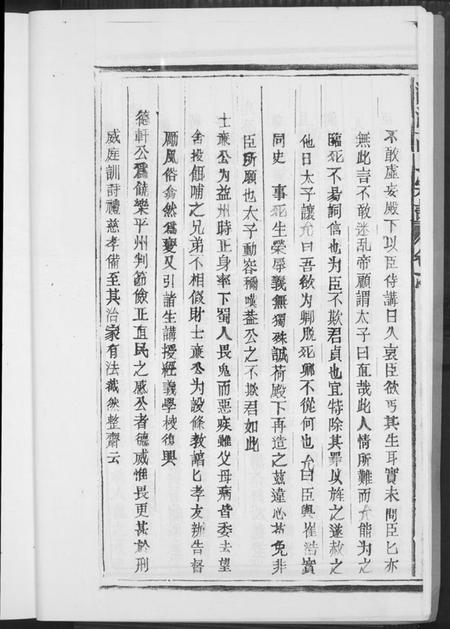 不敢虛妄殿下以臣侍講日久哀臣欲丐其生耳實未問臣匕亦
無此言不敢迷乱帝顧謂太子曰直哉此人情所難而允能为之
臨死不易詞信也为臣不欺君貞也宜特除其罪以旌之遂赦之
他日太子讓允曰吾欲为卿脱死卿不從何也允曰臣與崔浩實
同史 事死生榮辱義無獨殊誠荷殿下再造之兹違心苟免非
臣所願也太子動容稱嘆葢公之不欺君如此
士亷公为益州時正身率下蜀人畏鬼而惡疾雖父母病皆委去望
舍投餌哺之兄弟不相假財士亷公为設條教諭匕孝友 告督
勵風俗翕然爲變又引諸生講授經義學校復興
德軒公爲饒樂平州判莭儉正直民之感公者德威惟畏更甚於刑
威庭訓詩禮慈孝備至其治家有法截然整齋云